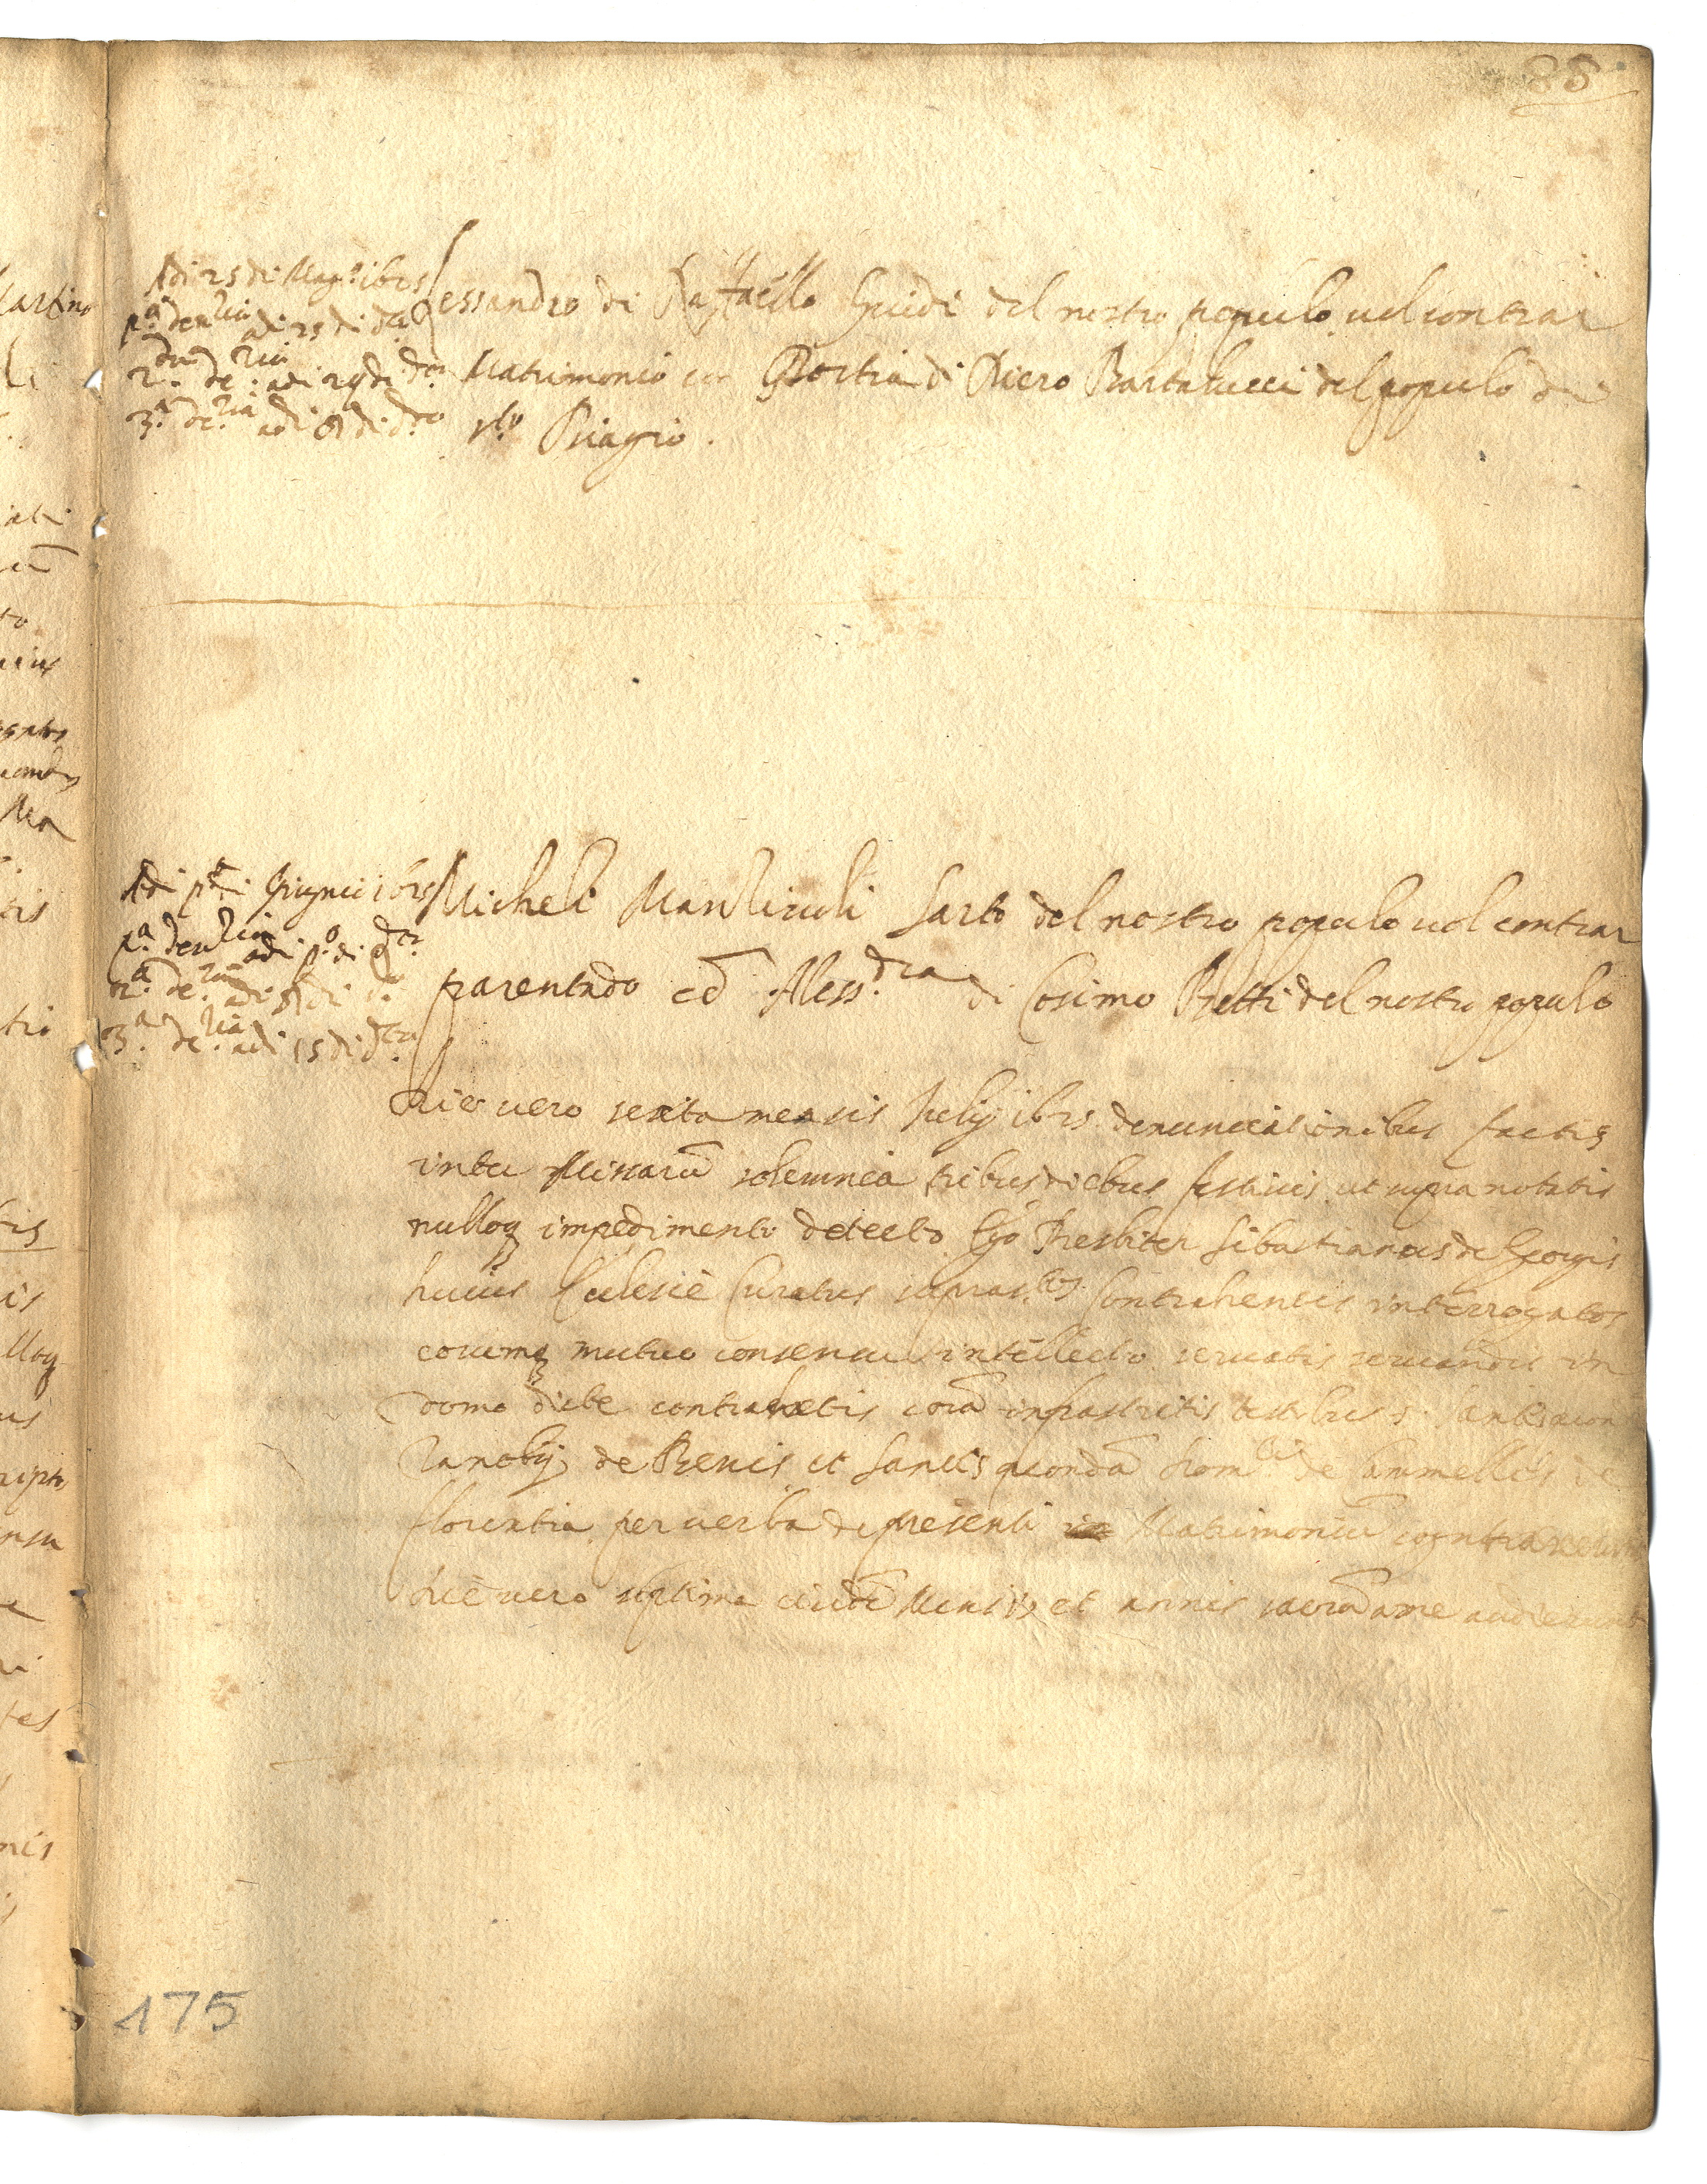 88
Adi 25 di Mag.º 1625
p.ª den.tia adi 25 di d.º
2.da de.tia adi 29 di d.to
3.ª de.tia adi 8 di d.to
Alessandro di Raffaello Guidi del nostro populo uol contrar
Matrimonio con Portia di Piero Bartalucci del populo di
s.to Biagio.
Adi p.º di Giugnio 1625
p.ª den.tia adi p.º di d.to
2.ª de.tia adi 8 di d.to
3.ª de.tia adi 15 di d.to
Micheli sarto del nostro populo uol contrar
parentado cō Aless.dra di Cosimo Betti del nostro populo
Die uero sexta mensis Iulij 1625 denunciationibus factis
intra Missarū solemnia tribus diebus festiuis ut supra notatis
nulloq impedimento detecto Ego Presbiter Sebastianus de Georgis
huius Ecclesie Curatus supras.tos Contrahentes interrogatos
eorumq mutuo consensu intellecto seruatis seruandis in
domo dicte contrahētis corā infrascritis testibus s.
Zanobij de Renis et Sanctis quondā de Cammellis de
florentia per uerba de presenti Matrimoniū
Die uero septima eiusdē Mensis et annis a me
175